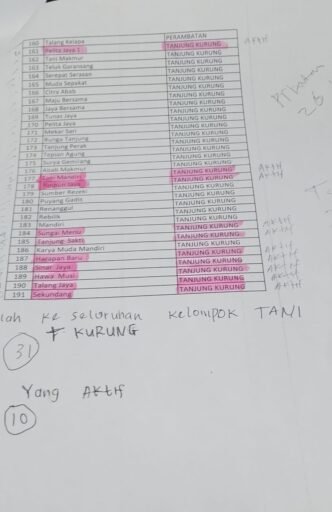 160 Talang Kelapa PERAMBATAN
161 Pelita Jaya 1 TANJUNG KURUNG AKTIF
162 Tani Makmur TANJUNG KURUNG
163 Teluk Garansang TANJUNG KURUNG
164 Serepat Serasan TANJUNG KURUNG
165 Muda Sepakat TANJUNG KURUNG
166 Abab TANJUNG KURUNG
167 Maju Bersama TANJUNG KURUNG
168 Jaya Bersama TANJUNG KURUNG
169 Tunas Jaya TANJUNG KURUNG
170 Pelita Jaya TANJUNG KURUNG
171 Mekar Sari TANJUNG KURUNG
172 Bunga Tanjung TANJUNG KURUNG
173 Tanjung Perak TANJUNG KURUNG
174 Tepian Agung TANJUNG KURUNG
175 Surya Gemilang TANJUNG KURUNG
176 Abab Makmur TANJUNG KURUNG AKTIF
177 Mandiri TANJUNG KURUNG AKTIF
178 TANJUNG KURUNG
179 Sumber Rezeki TANJUNG KURUNG
180 Puyang Gadis TANJUNG KURUNG
181 Renanggul TANJUNG KURUNG
182 Rebilik TANJUNG KURUNG
183 Mandiri TANJUNG KURUNG AKTIF
184 Sungai Meriu TANJUNG KURUNG AKTIF
185 Tanjung Sakti TANJUNG KURUNG
186 Karya Muda Mandiri TANJUNG KURUNG AKTIF
187 Harapan Baru TANJUNG KURUNG AKTIF
188 Sinar Jaya TANJUNG KURUNG AKTIF
189 Hawa Musi TANJUNG KURUNG AKTIF
190 Talang Jaya TANJUNG KURUNG AKTIF
191 Sekundang TANJUNG KURUNG
lah ke seluruhan kelompok TANI
T KURUNG
31
Yang AKTIF
10